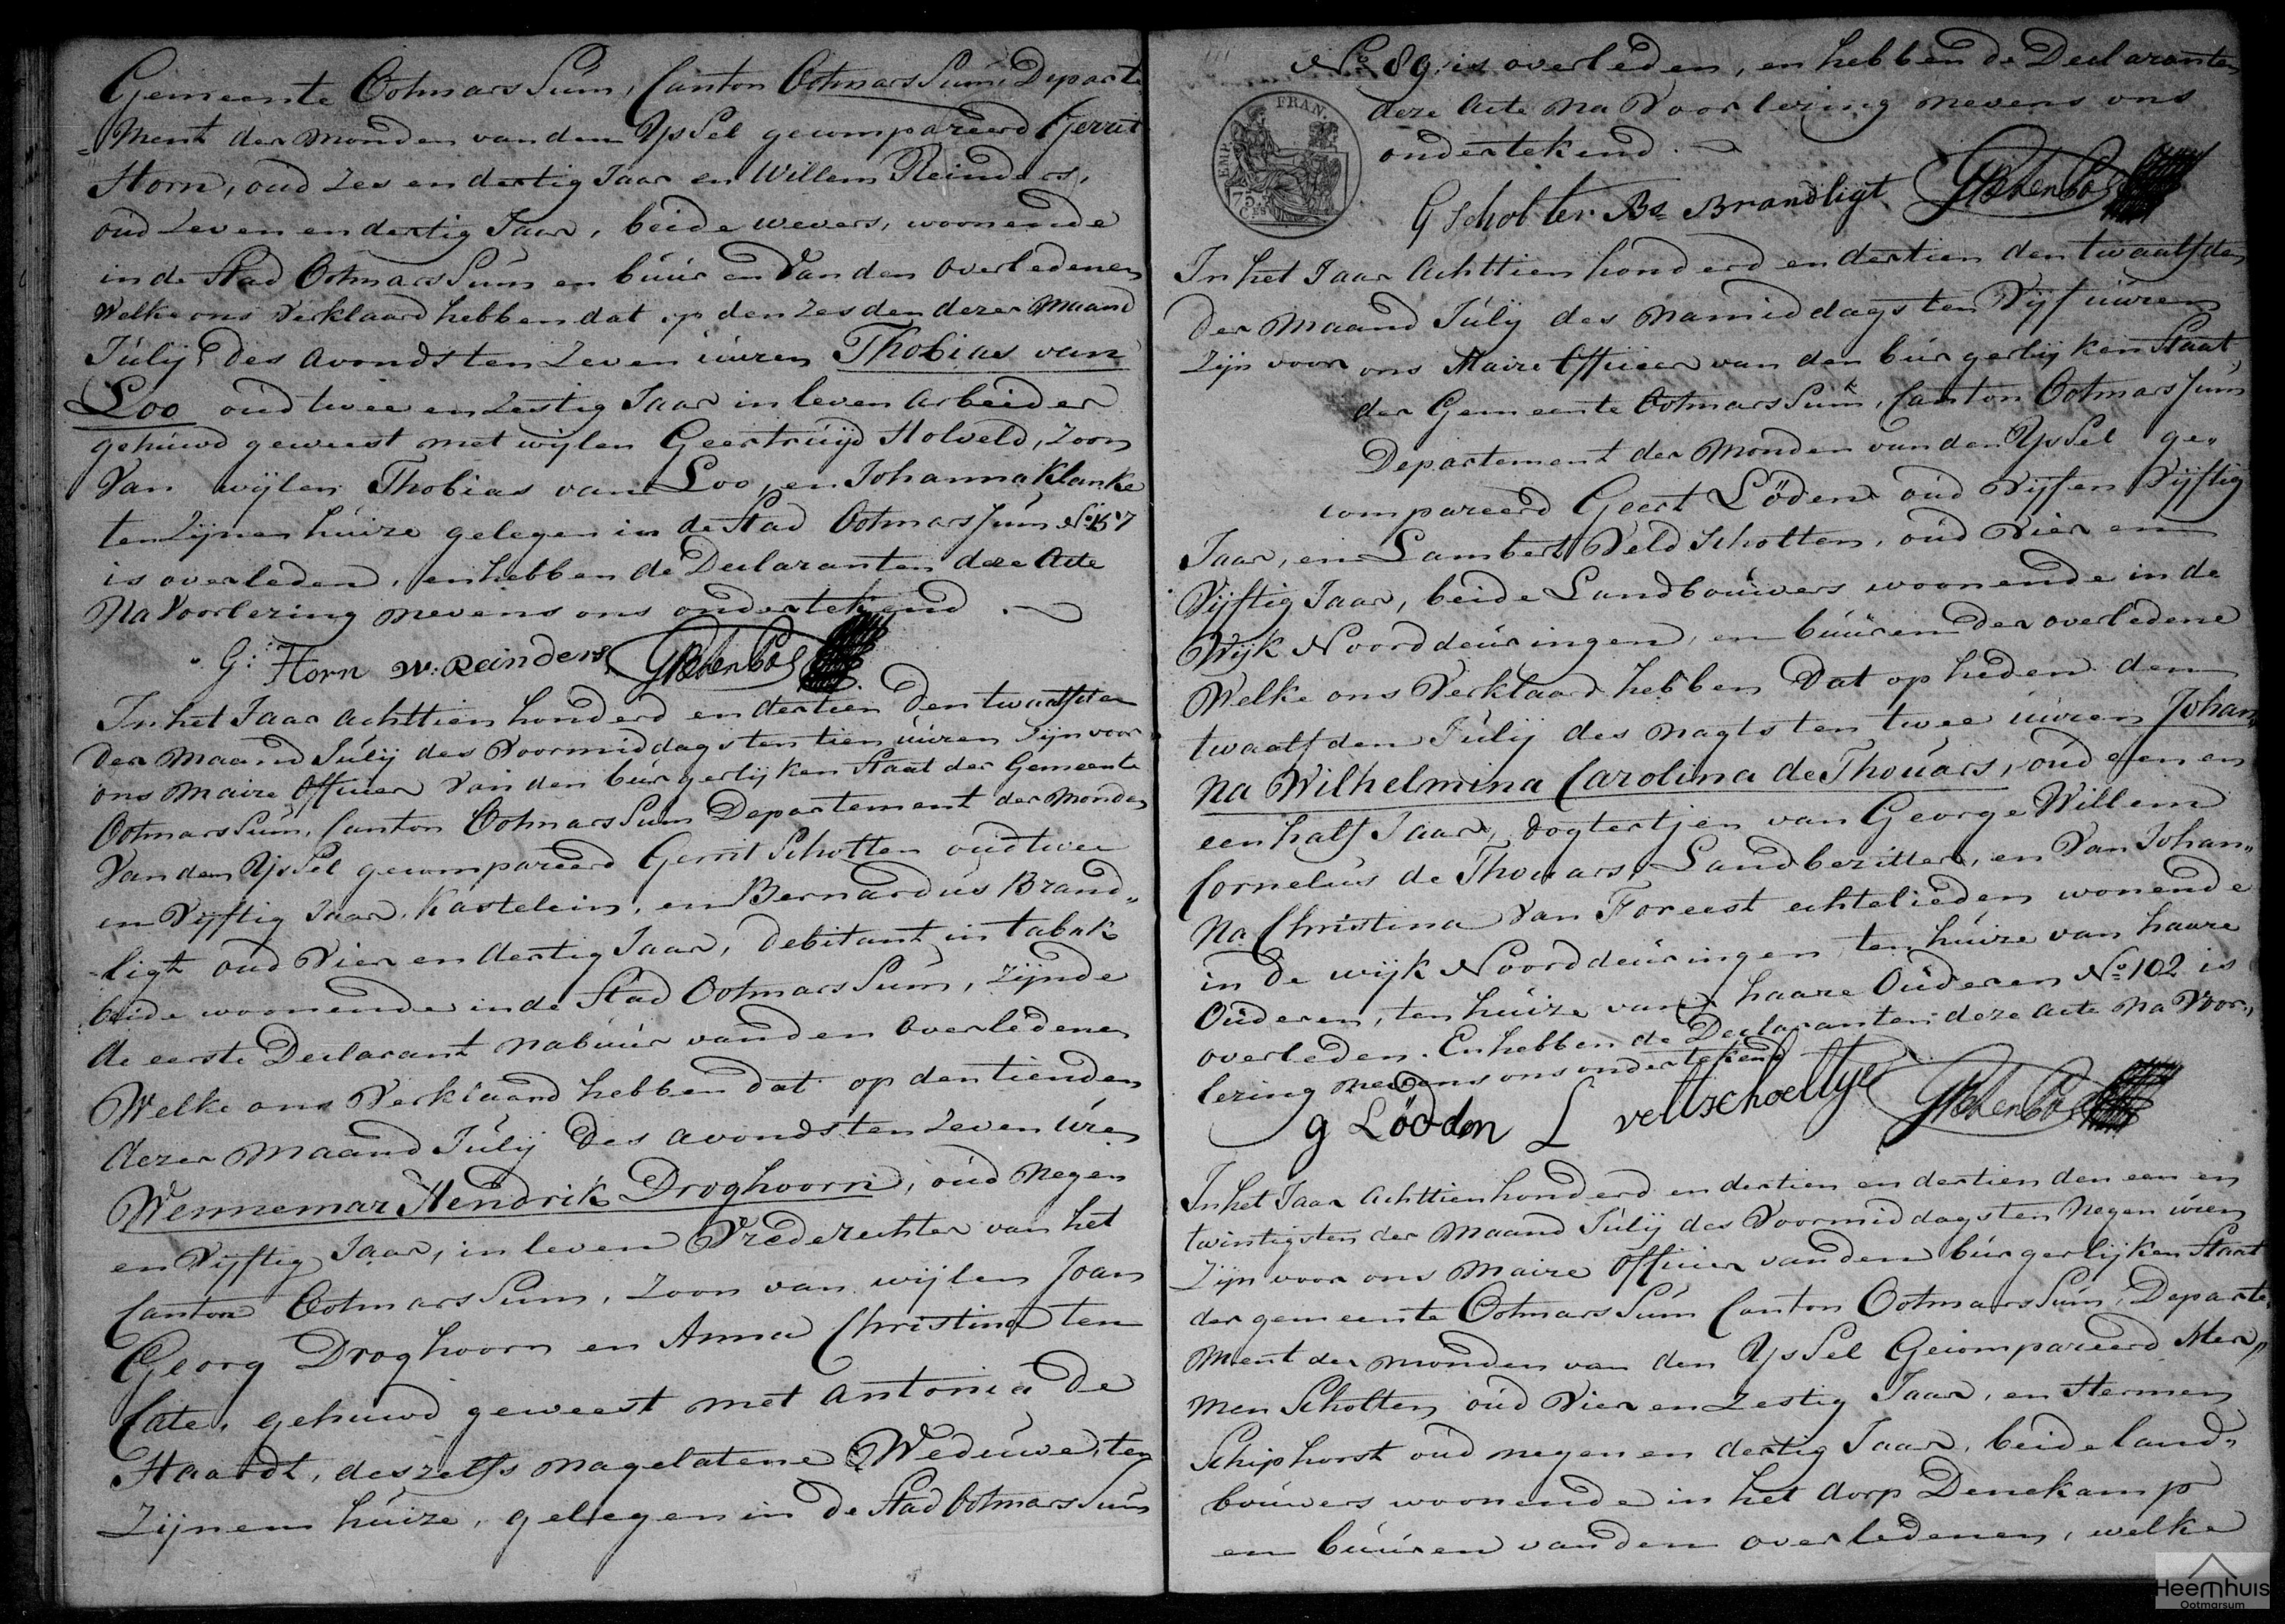 Gemeente Ootmarssum, Canton Ootmarssum, Departe
=ment der monden van den Yssel gecompareerd Gerrit
Horn, oud zes en dertig Jaar en Willem Reinders,
oud zeven en dertig Jaar, beide wevers, woonende
in de Stad Ootmarssum en buuren van den overledenen
Welke ons verklaard hebben dat op den zesden dezer Maand
July des avonds ten zeven uuren Thobias van
Loo oud twee en zestig Jaar in leven arbeider
gehuwd geweest met wylen Geertruyd Holveld, zoon
van wylen Thobias van Loo, en Johanna Klanke
ten zynen huize gelegen in de Stad Ootmarssum No
is overleden, en hebben de Declaranten deze Acte
Na voorlezing nevens ons ondertekend.
G: Horn W: Reinders
In het Jaar achttien honderd en dertien den twaalfden
der Maand July des voormiddags ten tien uuren zyn voor
ons Maire Officier van den burgerlyken Staat der Gemeente
Ootmarssum, Canton Ootmarssum Departement der Monden
van den Yssel gecompareerd Gerrit Scholten oud twee
en vyftig Jaar, Kastelein, en Bernardus Brand„
-ligt oud vier en dertig Jaar, debitant in tabak
beide woonende in de Stad Ootmarssum, zynde
de eerste Declarant nabuur van den overledenen
Welke ons verklaard hebben dat op den tienden
dezer Maand July des avonds ten zeven uren
Wennemar Hendrik Droghoorn, oud negen
en vyftig Jaar, in leven Vrederechter van het
Canton Ootmarssum, zoon van wylen Joan
Georg Droghoorn en Anna Christina ten
Cate, gehuwd geweest met Antonia de
Haardt, deszelfs nagelatene Weduwe, ten
zynen huize, gelegen in de Stad Ootmarssum
No 89, is overleden, en hebben de Declaranten
deze Acte na voorlezing nevens ons
ondertekend.
EMP. FRAN.
75.
CES
G Scholten Bs Brandligt
In het Jaar Achttien honderd en dertien den twaalfden
der Maand July des namiddags ten vyf uuren
zyn voor ons Maire Officier van den burgerlyken Staat
der Gemeente Ootmarssum, Canton Ootmarssum
Departement der Monden van den Yssel ge„
compareerd Geert Löden oud vyf en vyftig
Jaar, en Lambert Veldscholten, oud vier en
vyftig Jaar, beide Landbouwers woonende in de
Wyk Noorddeuringen, en buuren der overledene
Welke ons verklaard hebben dat op heden den
twaalfden July des nagts ten twee uuren Johan„
na Wilhelmina Carolina de Thouars, oud een en
een half Jaar, dogtertjen van George Willem
Cornelius de Thouars, Landbezitter, en van Johan„
na Christina van Foreest echtelieden wonende
in de wyk Noorddeuringen, ten huize van haare
Ouderen, ten huize van haare Ouderen No 102 is
overleden. En hebben de Declaranten deze acte na voor„
lezing nevens ons ondertekend
g Lödden L veltschoeltye
In het Jaar achttien honderd en dertien en dertien den een en
twintigsten der Maand July des voormiddags ten negen uren
zyn voor ons Maire Officier van den burgerlyken Staat
der gemeente Ootmarssum Canton Ootmarssum, Departe„
ment der monden van den Yssel Gecompareerd Her„
men Scholten oud vier en zestig Jaar, en Hermen
Schiphorst oud negen en dertig Jaar, beide land„
bouwers woonende in het dorp Denekamp
en buuren van den overledenen, welke
Heemhuis
Ootmarsum